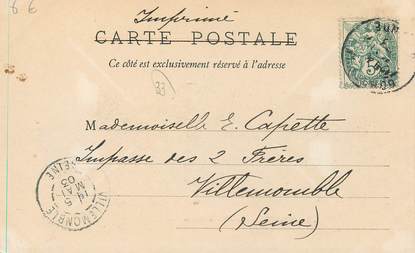 6 €
Imprimé
CARTE POSTALE
Ce côté est exclusivement réservé à l'adresse
Mademoiselle E. Capette
Impasse des 2 Frères
Villemomble
(Seine)
VILLEMOMBLE
SEINE
5
MAI
03